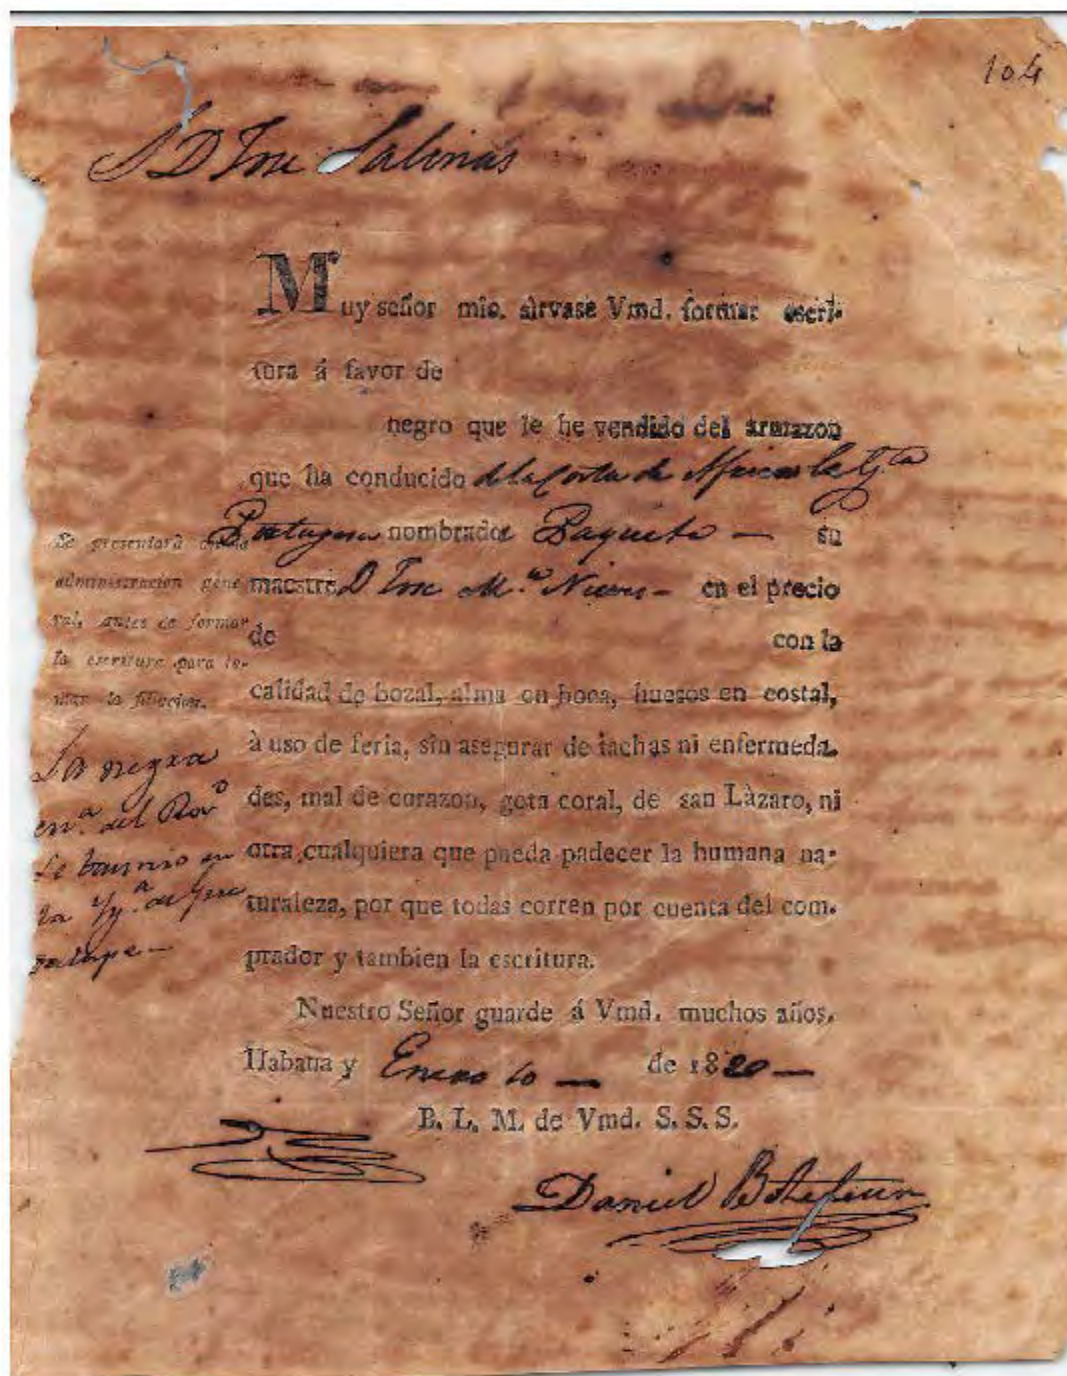 104
S D Jose Salinas
Muy señor mio. sirvase Vmd. formar escri-
tura á favor de
negro que le he vendido del armazon
que ha conducido de la Costa de Africa la Gta
Portuguesa nombrada Paquete — su
maestre D Jose Ma. Nieves — en el precio
de con la
calidad de bozal, alma en boca, huesos en costal,
à uso de feria, sin asegurar de tachas ni enfermeda-
des, mal de corazon, gota coral, de san Làzaro, ni
otra cualquiera que pueda padecer la humana na-
turaleza, por que todas corren por cuenta del com-
prador y tambien la escritura.
Nuestro Señor guarde á Vmd. muchos años.
Habana y Enero 10 — de 1820 —
B. L. M. de Vmd. S. S. S.
Daniel Botefeur
Se presentará
administracion gene
ral, antes de formar
la escritura para to-
mar la filiacion.
La negra
del
se bautisó en
la Yga. de Gua
dalupe —